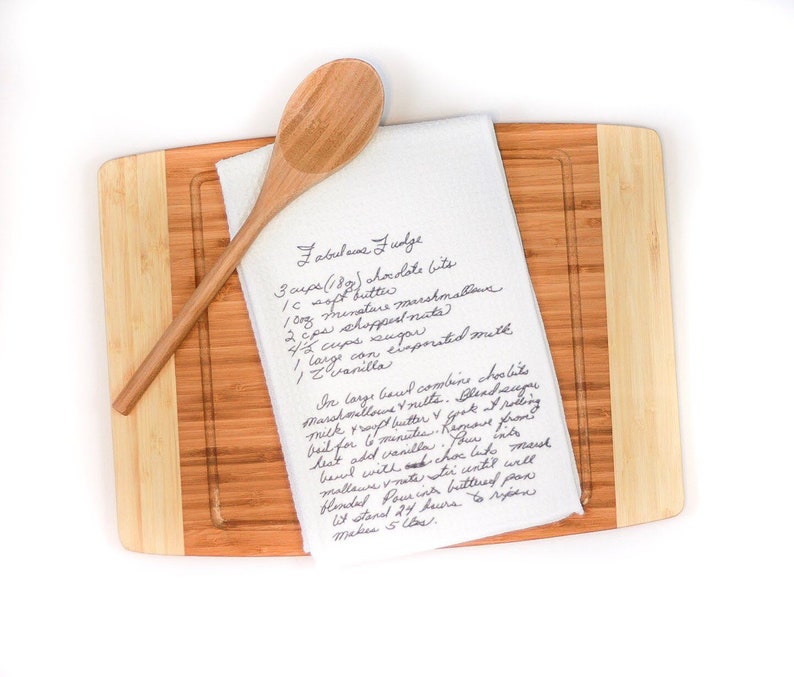 Fabulous Fudge
3 cups (18oz) chocolate bits
1 c soft butter
10oz minature marshmallows
2 cps chopped nuts
4½ cups sugar
1 large can evaporated milk
1 T vanilla
In large bowl combine choc bits
marshmallows & nuts. Blend sugar
milk & soft butter & cook at rolling
boil for 6 minutes. Remove from
heat add vanilla. Pour into
bowl with choc bits marsh
mallows & nuts stir until well
blended Pour into buttered pan
let stand 24 hours to ripen
makes 5 lbs.